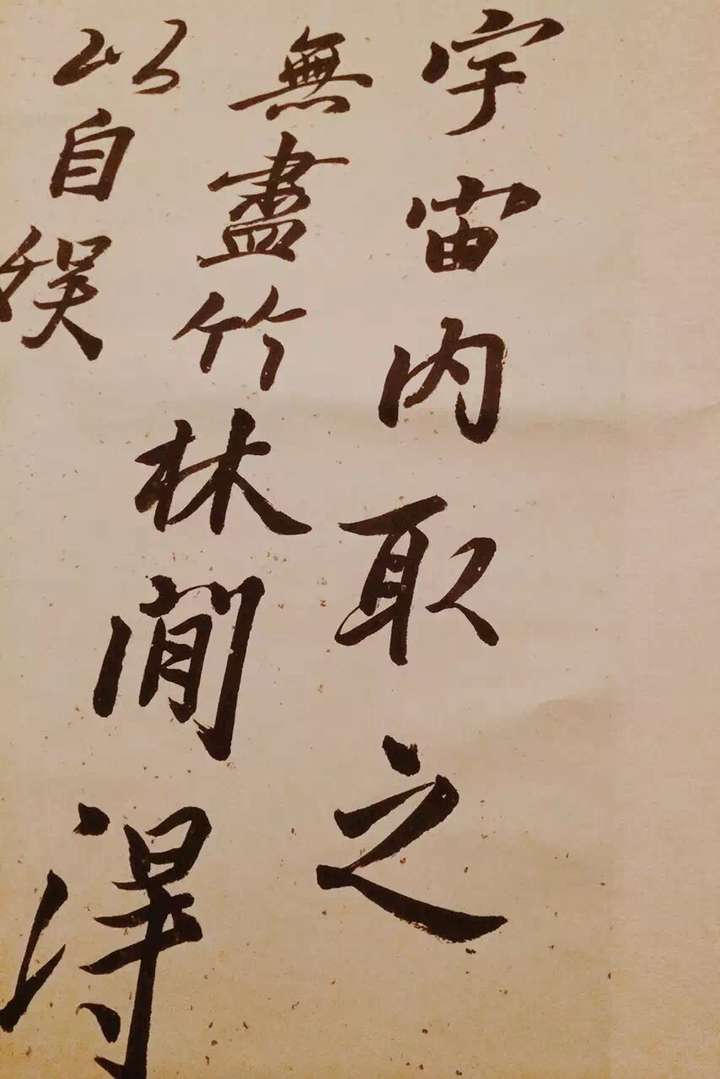 宇宙內取之
無盡竹林閒得
以自娱